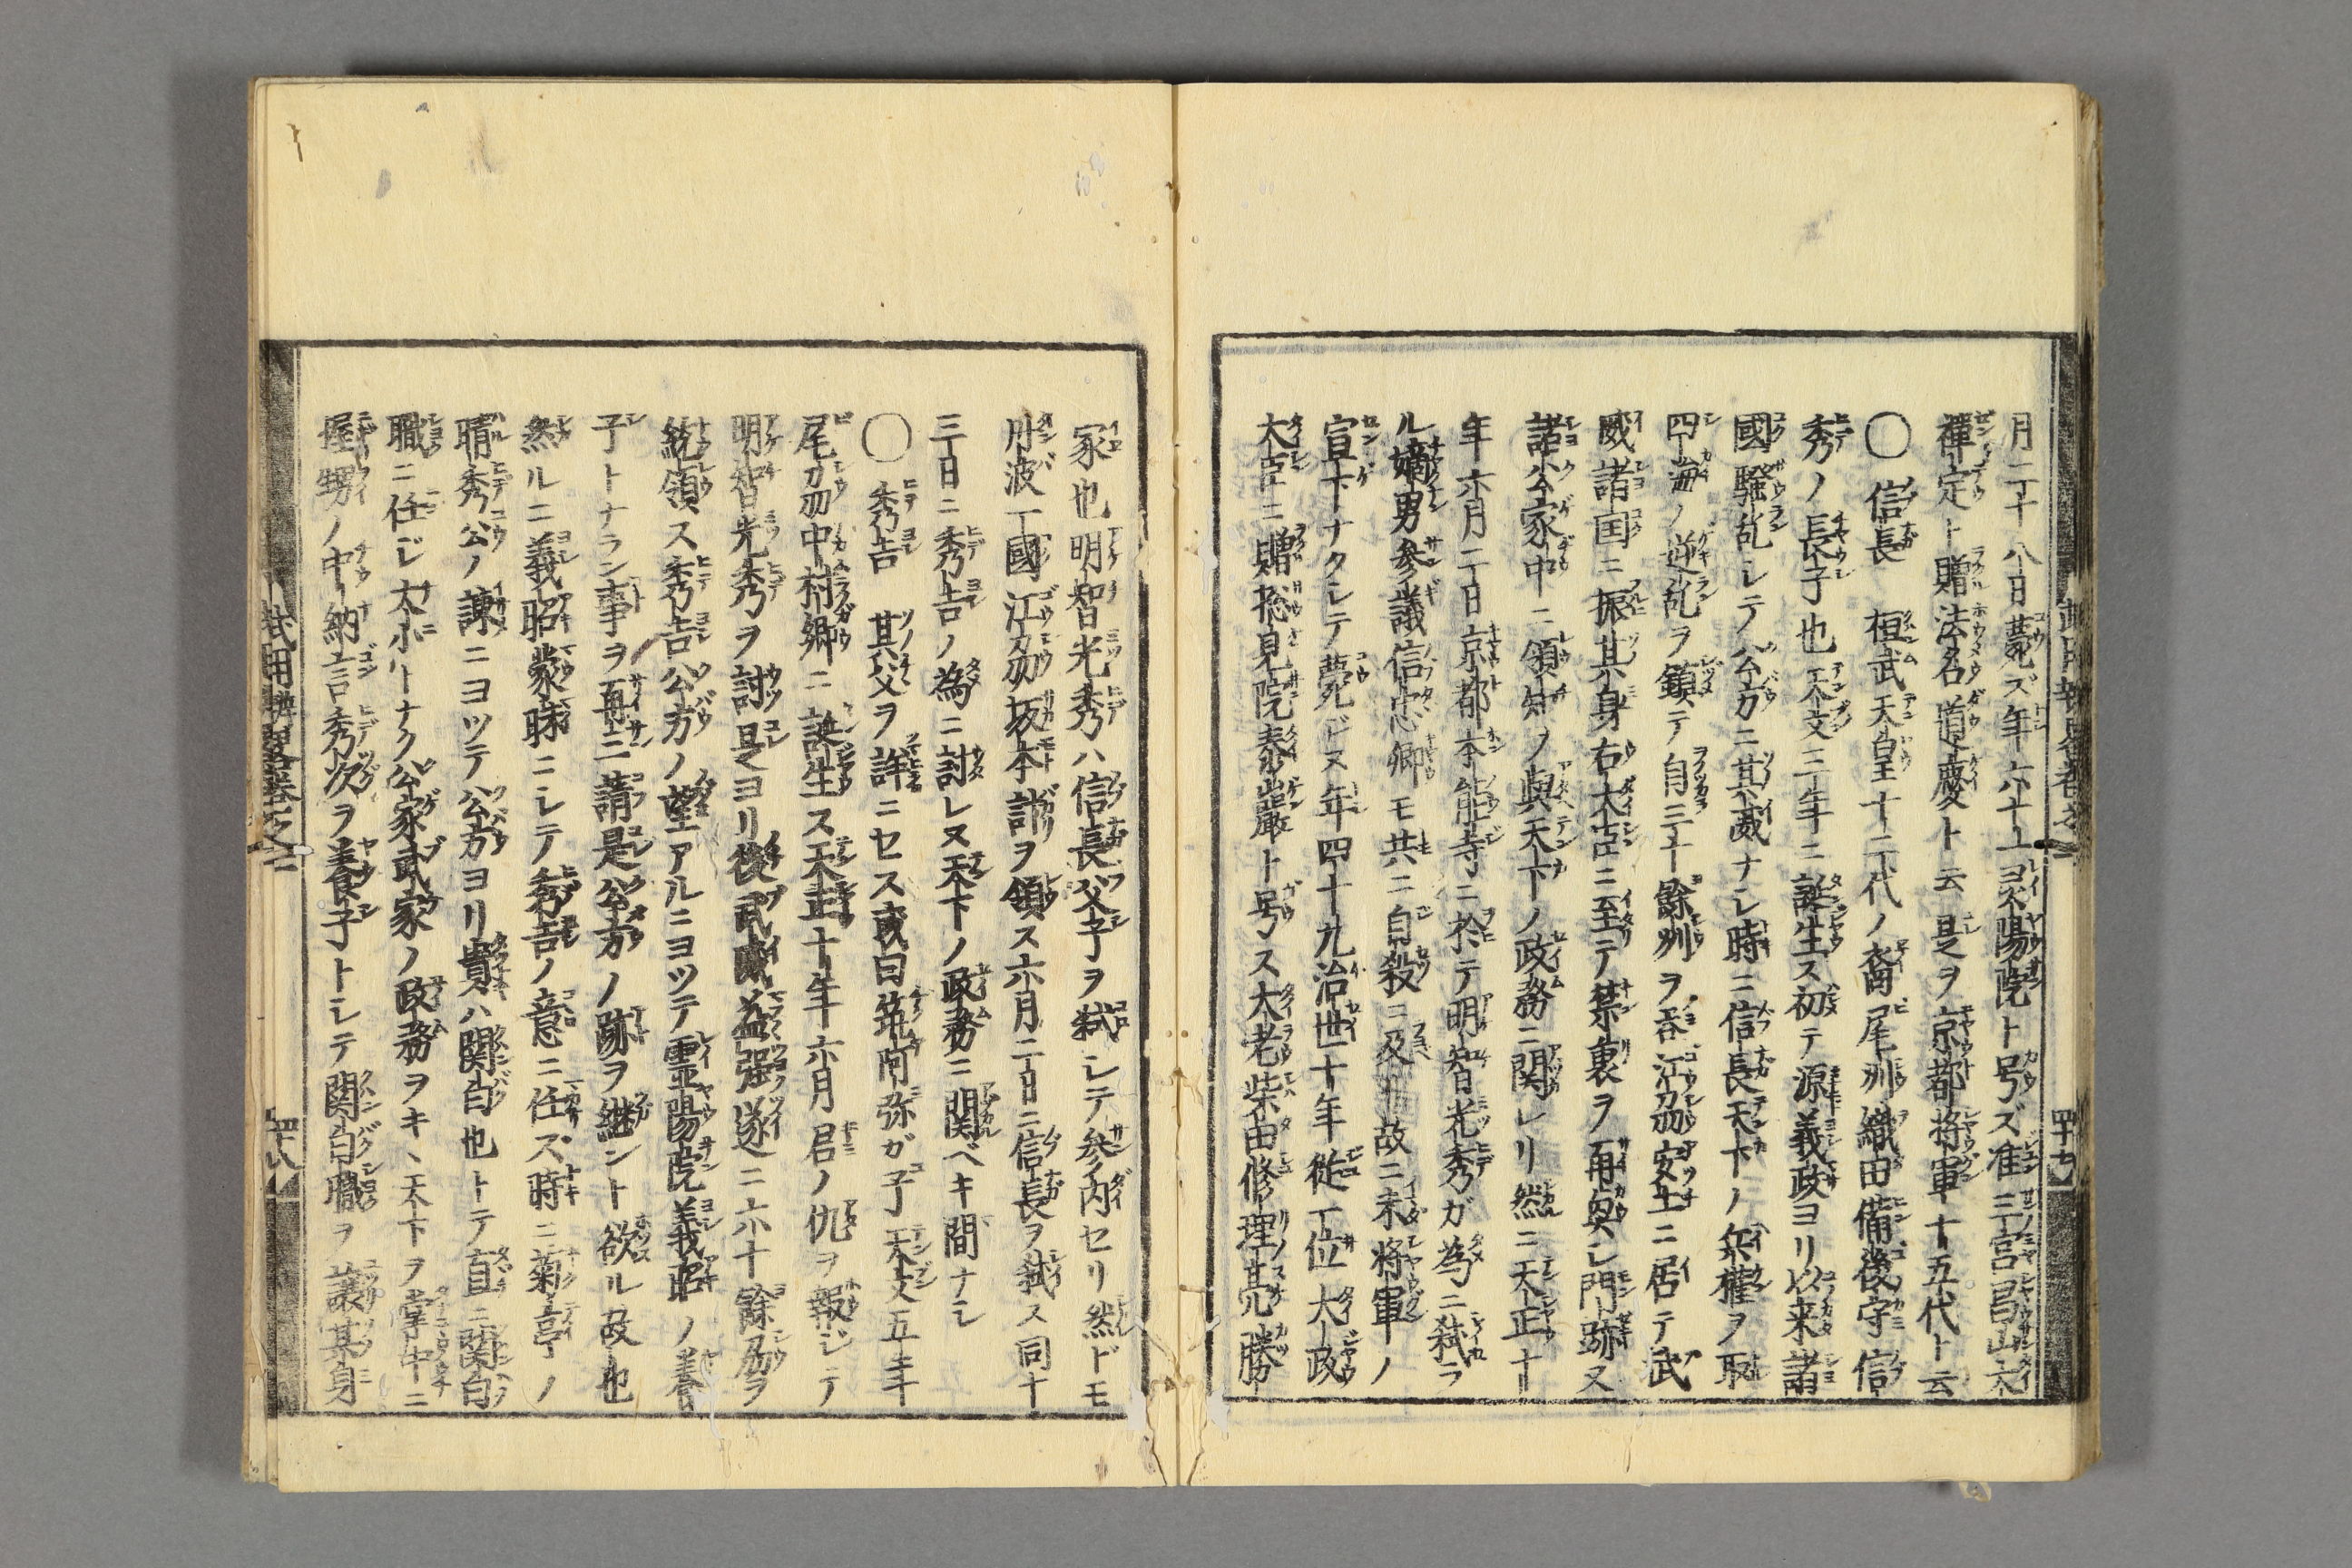 月二十八日薨ズ年六十一灵陽院ト号ズ准三宮昌山大
禅定ト贈法名道慶ト云是ヲ京都将軍十五代ト云
〇信長　桓武天皇十二代ノ裔尾刕織田備後守信
秀ノ長子也天文三年ニ誕生ス初テ源義政ヨリ以来諸
國騒乱シテ公方ニ其威ナシ時ニ信長天下ノ兵權ヲ取
四海ノ逆乱ヲ鎮テ自三十餘州ヲ呑江刕安土ニ居テ武
威諸国ニ振其身右大臣ニ至テ禁裏ヲ再興シ門跡又
諸公家中ニ領知ヲ與天下ノ政務ニ関レリ然ニ天正十
年六月二日京都本能寺ニ於テ明智光秀ガ為ニ弑ラ
ル嫡男参議信忠卿モ共ニ自殺ニ及故ニ未将軍ノ
宣下ナクシテ薨ジヌ年四十九治世十年従一位大政
大臣ニ贈捴見院泰巌ト号ス大老柴田修理亮勝
家也明智光秀ハ信長父子ヲ弑シテ参内セリ然ドモ
丹波一國江刕坂本許ヲ領ス六月二日ニ信長ヲ弑ス同十
三日ニ秀吉ノ為ニ討レヌ天下ノ政務ニ関ベキ間ナシ
〇秀吉　其父ヲ詳ニセス或曰筑阿弥ガ子天文五年
尾刕中村郷ニ誕生ス天正十年六月君ノ仇ヲ報ジテ
明智光秀ヲ討是ヨリ後武威益強遂ニ六十餘刕ヲ
統領ス秀吉公方ノ望アルニヨツテ霊陽院義昭ノ養
子トナラン事ヲ再三請是公方ノ跡ヲ継ント欲ル故也
然ルニ義昭蒙昧ニシテ秀吉ノ意ニ任ズ時ニ菊亭ノ
晴秀公ノ諌ニヨツテ公方ヨリ貴ハ関白也トテ直ニ関白
職ニ任ジ大小トナク公家武家ノ政務ヲキヽ天下ヲ掌中ニ
握甥ノ中納言秀次ヲ養子トシテ関白職ヲ譲其身
武用辨畧巻之二
四十七
武用辨畧巻之二
四十八